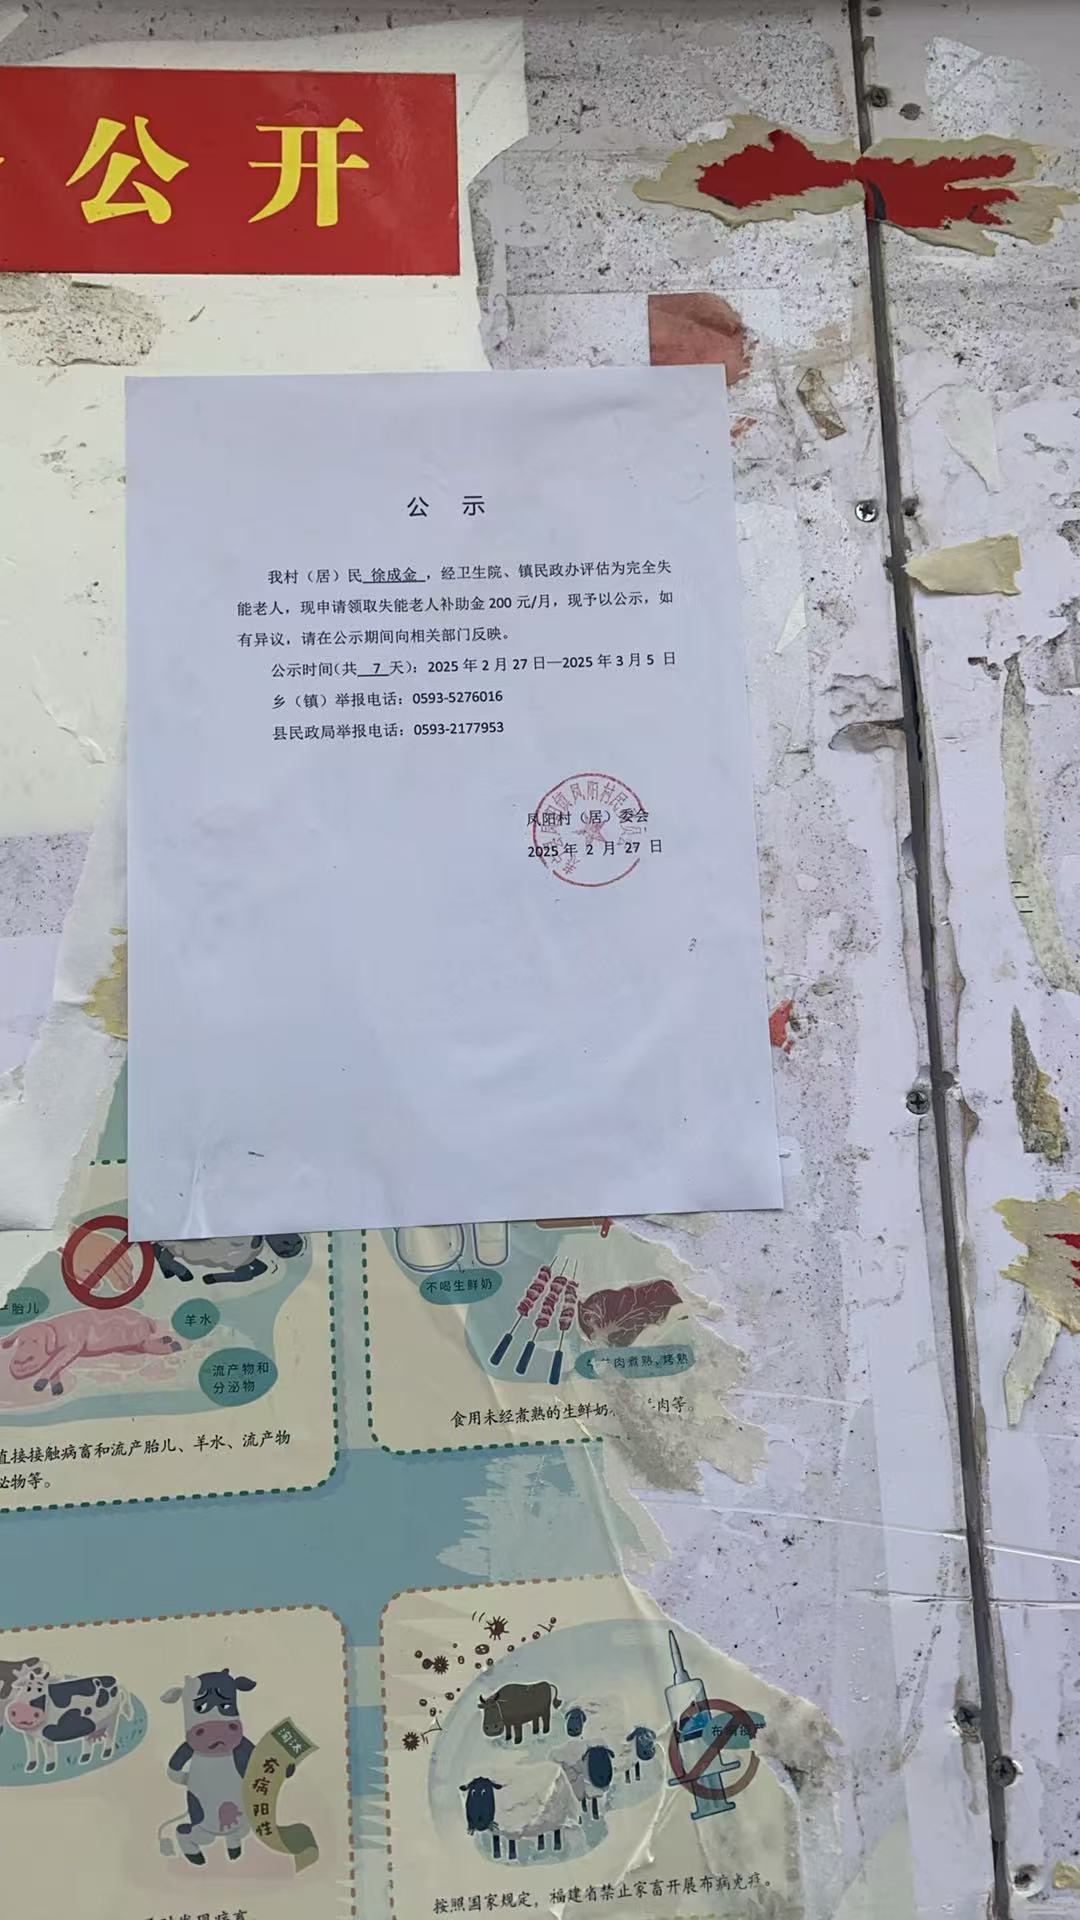 公开
公 示
我村（居）民 徐成金 ，经卫生院、镇民政办评估为完全失
能老人，现申请领取失能老人补助金 200 元/月，现予以公示，如
有异议，请在公示期间向相关部门反映。
公示时间（共 7 天）：2025 年 2 月 27 日—2025 年 3 月 5 日
乡（镇）举报电话：0593-5276016
县民政局举报电话：0593-2177953
凤阳村（居）委会
2025 年 2 月 27 日
胎儿
羊水
流产物和
分泌物
直接接触病畜和流产胎儿、羊水、流产物
泌物等。
不喝生鲜奶
肉煮熟、烤熟
食用未经煮熟的生鲜奶
肉等。
淘汰
布病阳性
布病疫苗
按照国家规定，福建省禁止家畜开展布病免疫。